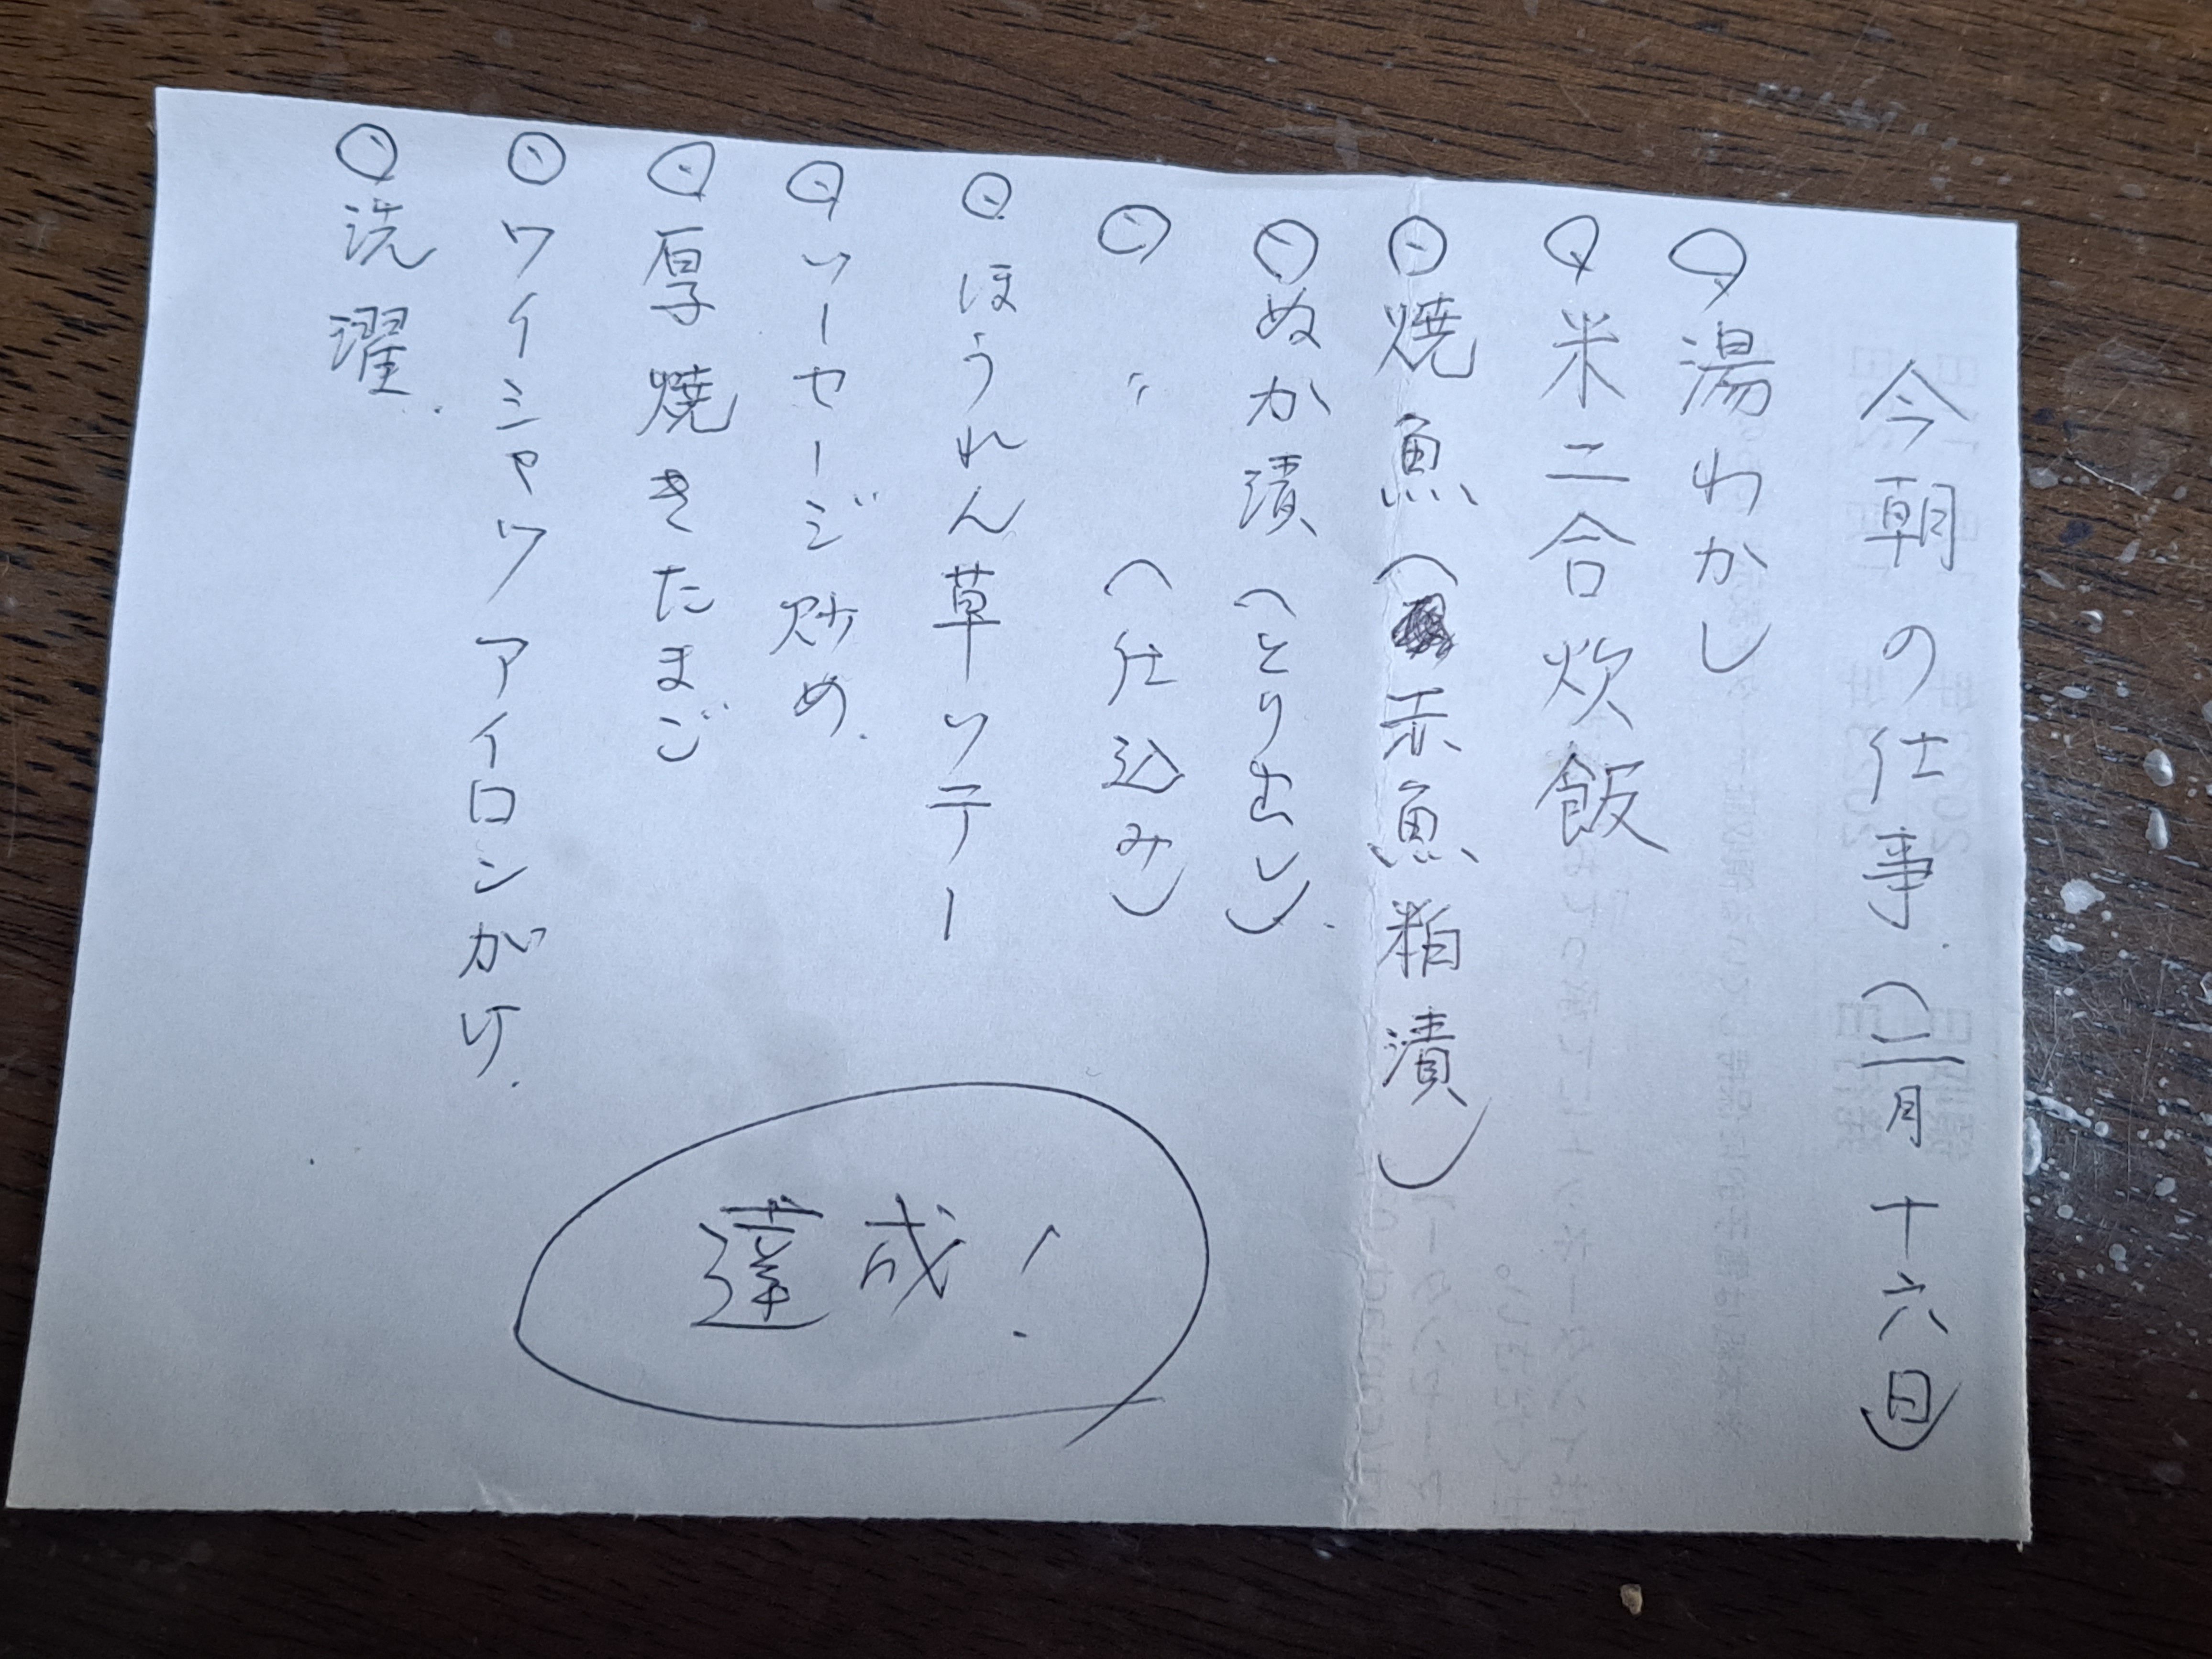 今朝の仕事(二月十六日)
湯わかし
米二合炊飯
焼魚(赤魚粕漬)
ぬか漬(とり出し)
〃(仕込み)
ほうれん草ソテー
ソーセージ炒め
厚焼きたまご
ワイシャツアイロンがけ
洗濯
達成!